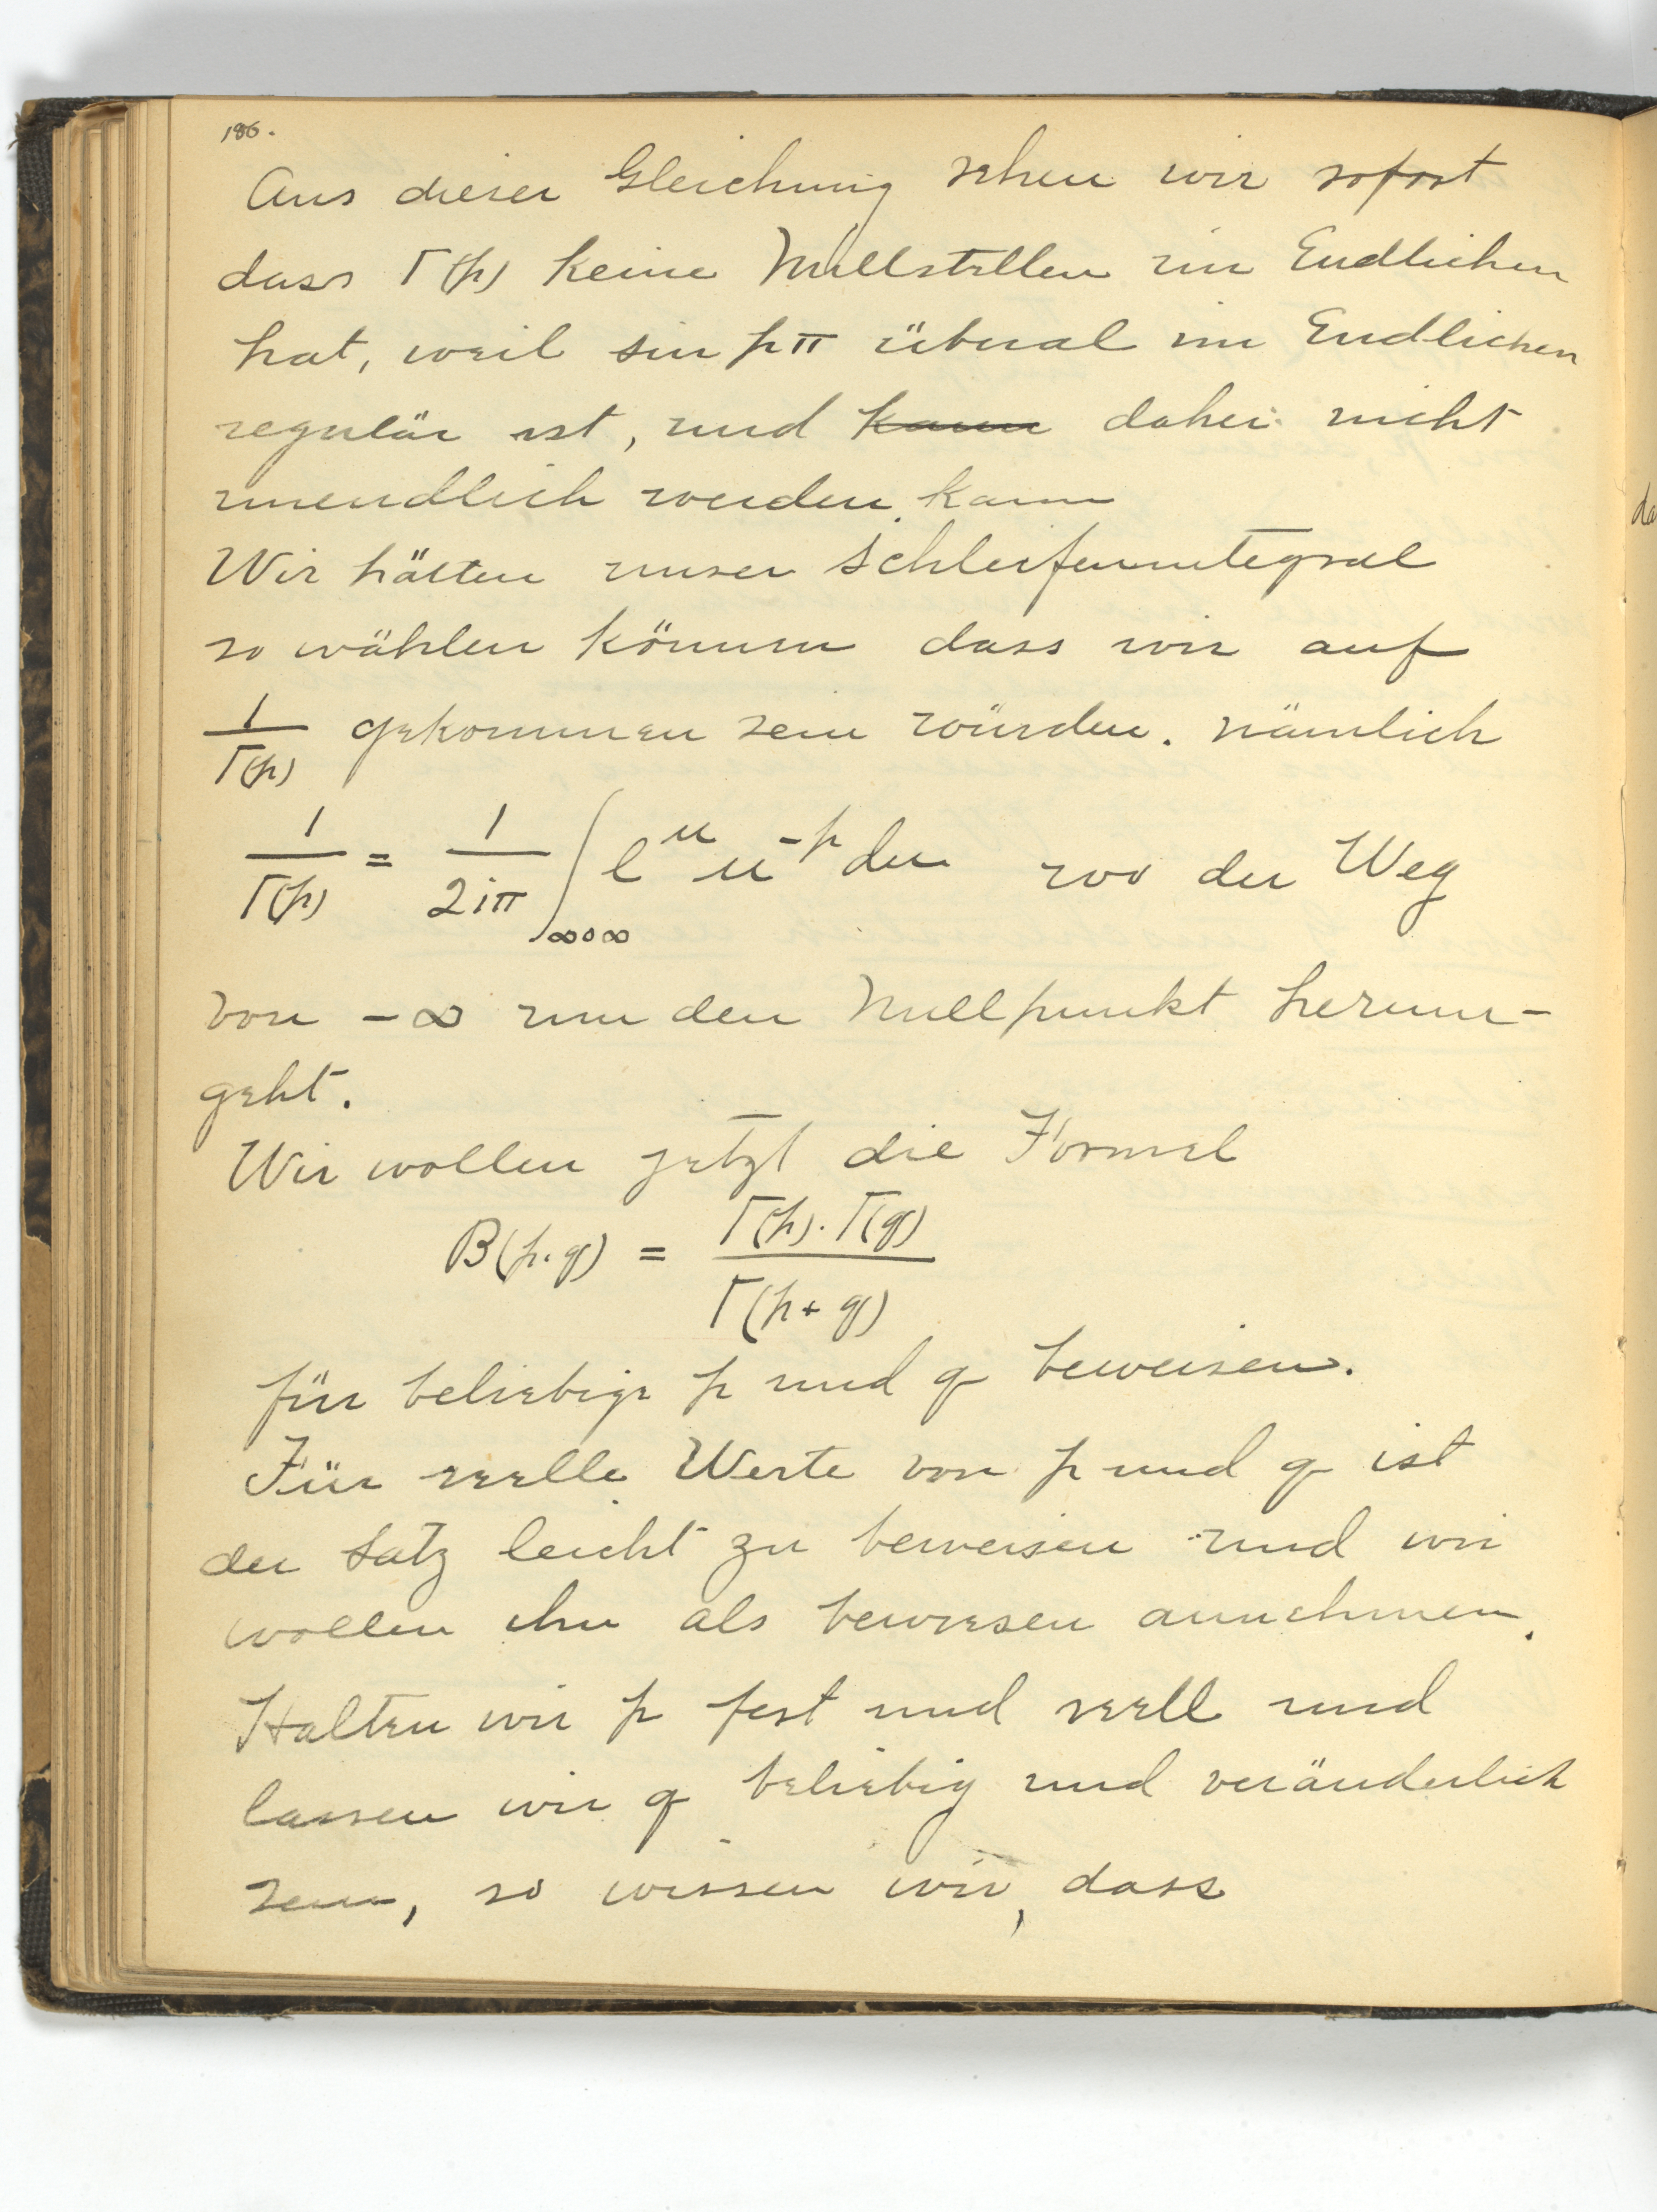 186.
Aus dieser Gleichung sehen wir sofort
dass Γ(p) keine Nullstellen im Endlichen
hat, weil sin pπ überal im Endlichen
regulär ist, und kann daher nicht
unendlich werden kann
Wir hätten unser Schleifenintegral
so wählen können dass wir auf
1/Γ(p) gekommen sein würden. nämlich
1/Γ(p) = 1/2iπ ∫∞0∞ e^u u^-p du wo der Weg
von -∞ um den Nullpunkt herum-
geht.
Wir wollen jetzt die Formel
B(p.q) = Γ(p).Γ(q)/Γ(p+q)
für beliebige p und q beweisen.
Für reelle Werte von p und q ist
der Satz leicht zu beweisen und wir
wollen ihn als bewiesen annehmen.
Halten wir p fest und reell und
lassen wir q beliebig und veränderlich
sein, so wissen wir, dass
da